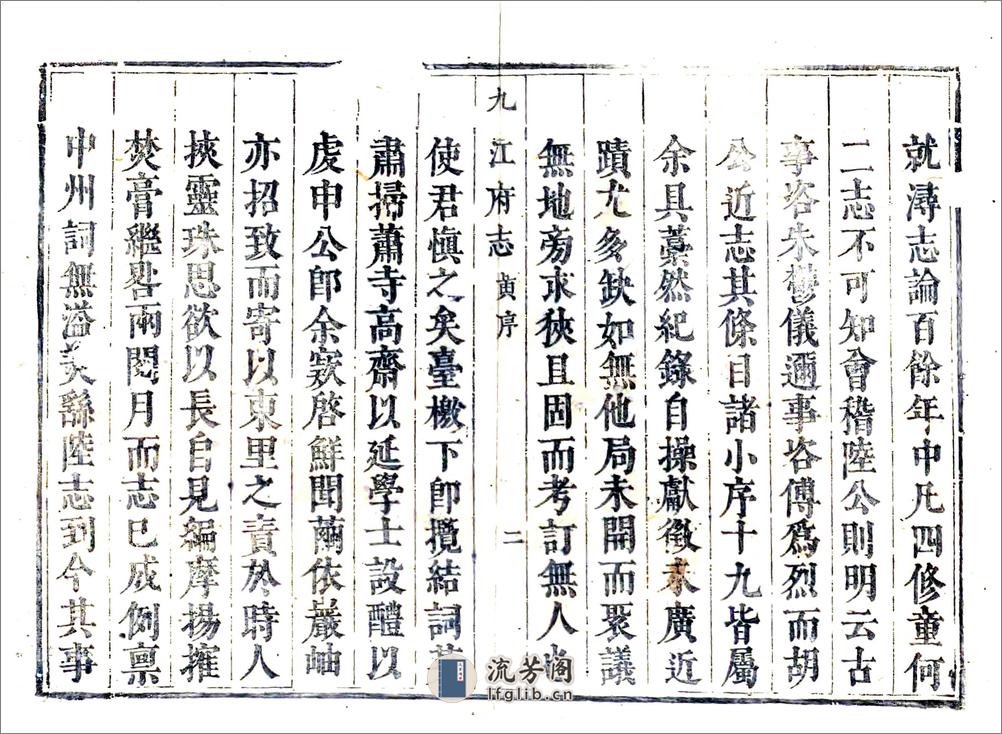 就潯志論百餘年中凡四修童何
二志不可知會稽陸公則明云古
事咨朱鬱儀邇事咨傅爲烈而胡
公近志其條目諸小序十九皆屬
余具藁然紀錄自操獻徵未廣近
蹟尤多缺如無他局未開而聚議
無地旁求狹且固而考訂無人
九江府志 黄序 二
使君愼之矣臺檄下卽攬結詞
肅掃蕭寺高齋以延學士設醴以
處申公卽余窾啓鮮聞蘭依巖岫
亦招致而寄以東里之責於時人
挾靈珠思欲以長自見編摩揚搉
焚膏繼晷兩閱月而志已成例稟
中州詞無溢美繇陸志到今其事
流芳阁
lfglib.cn